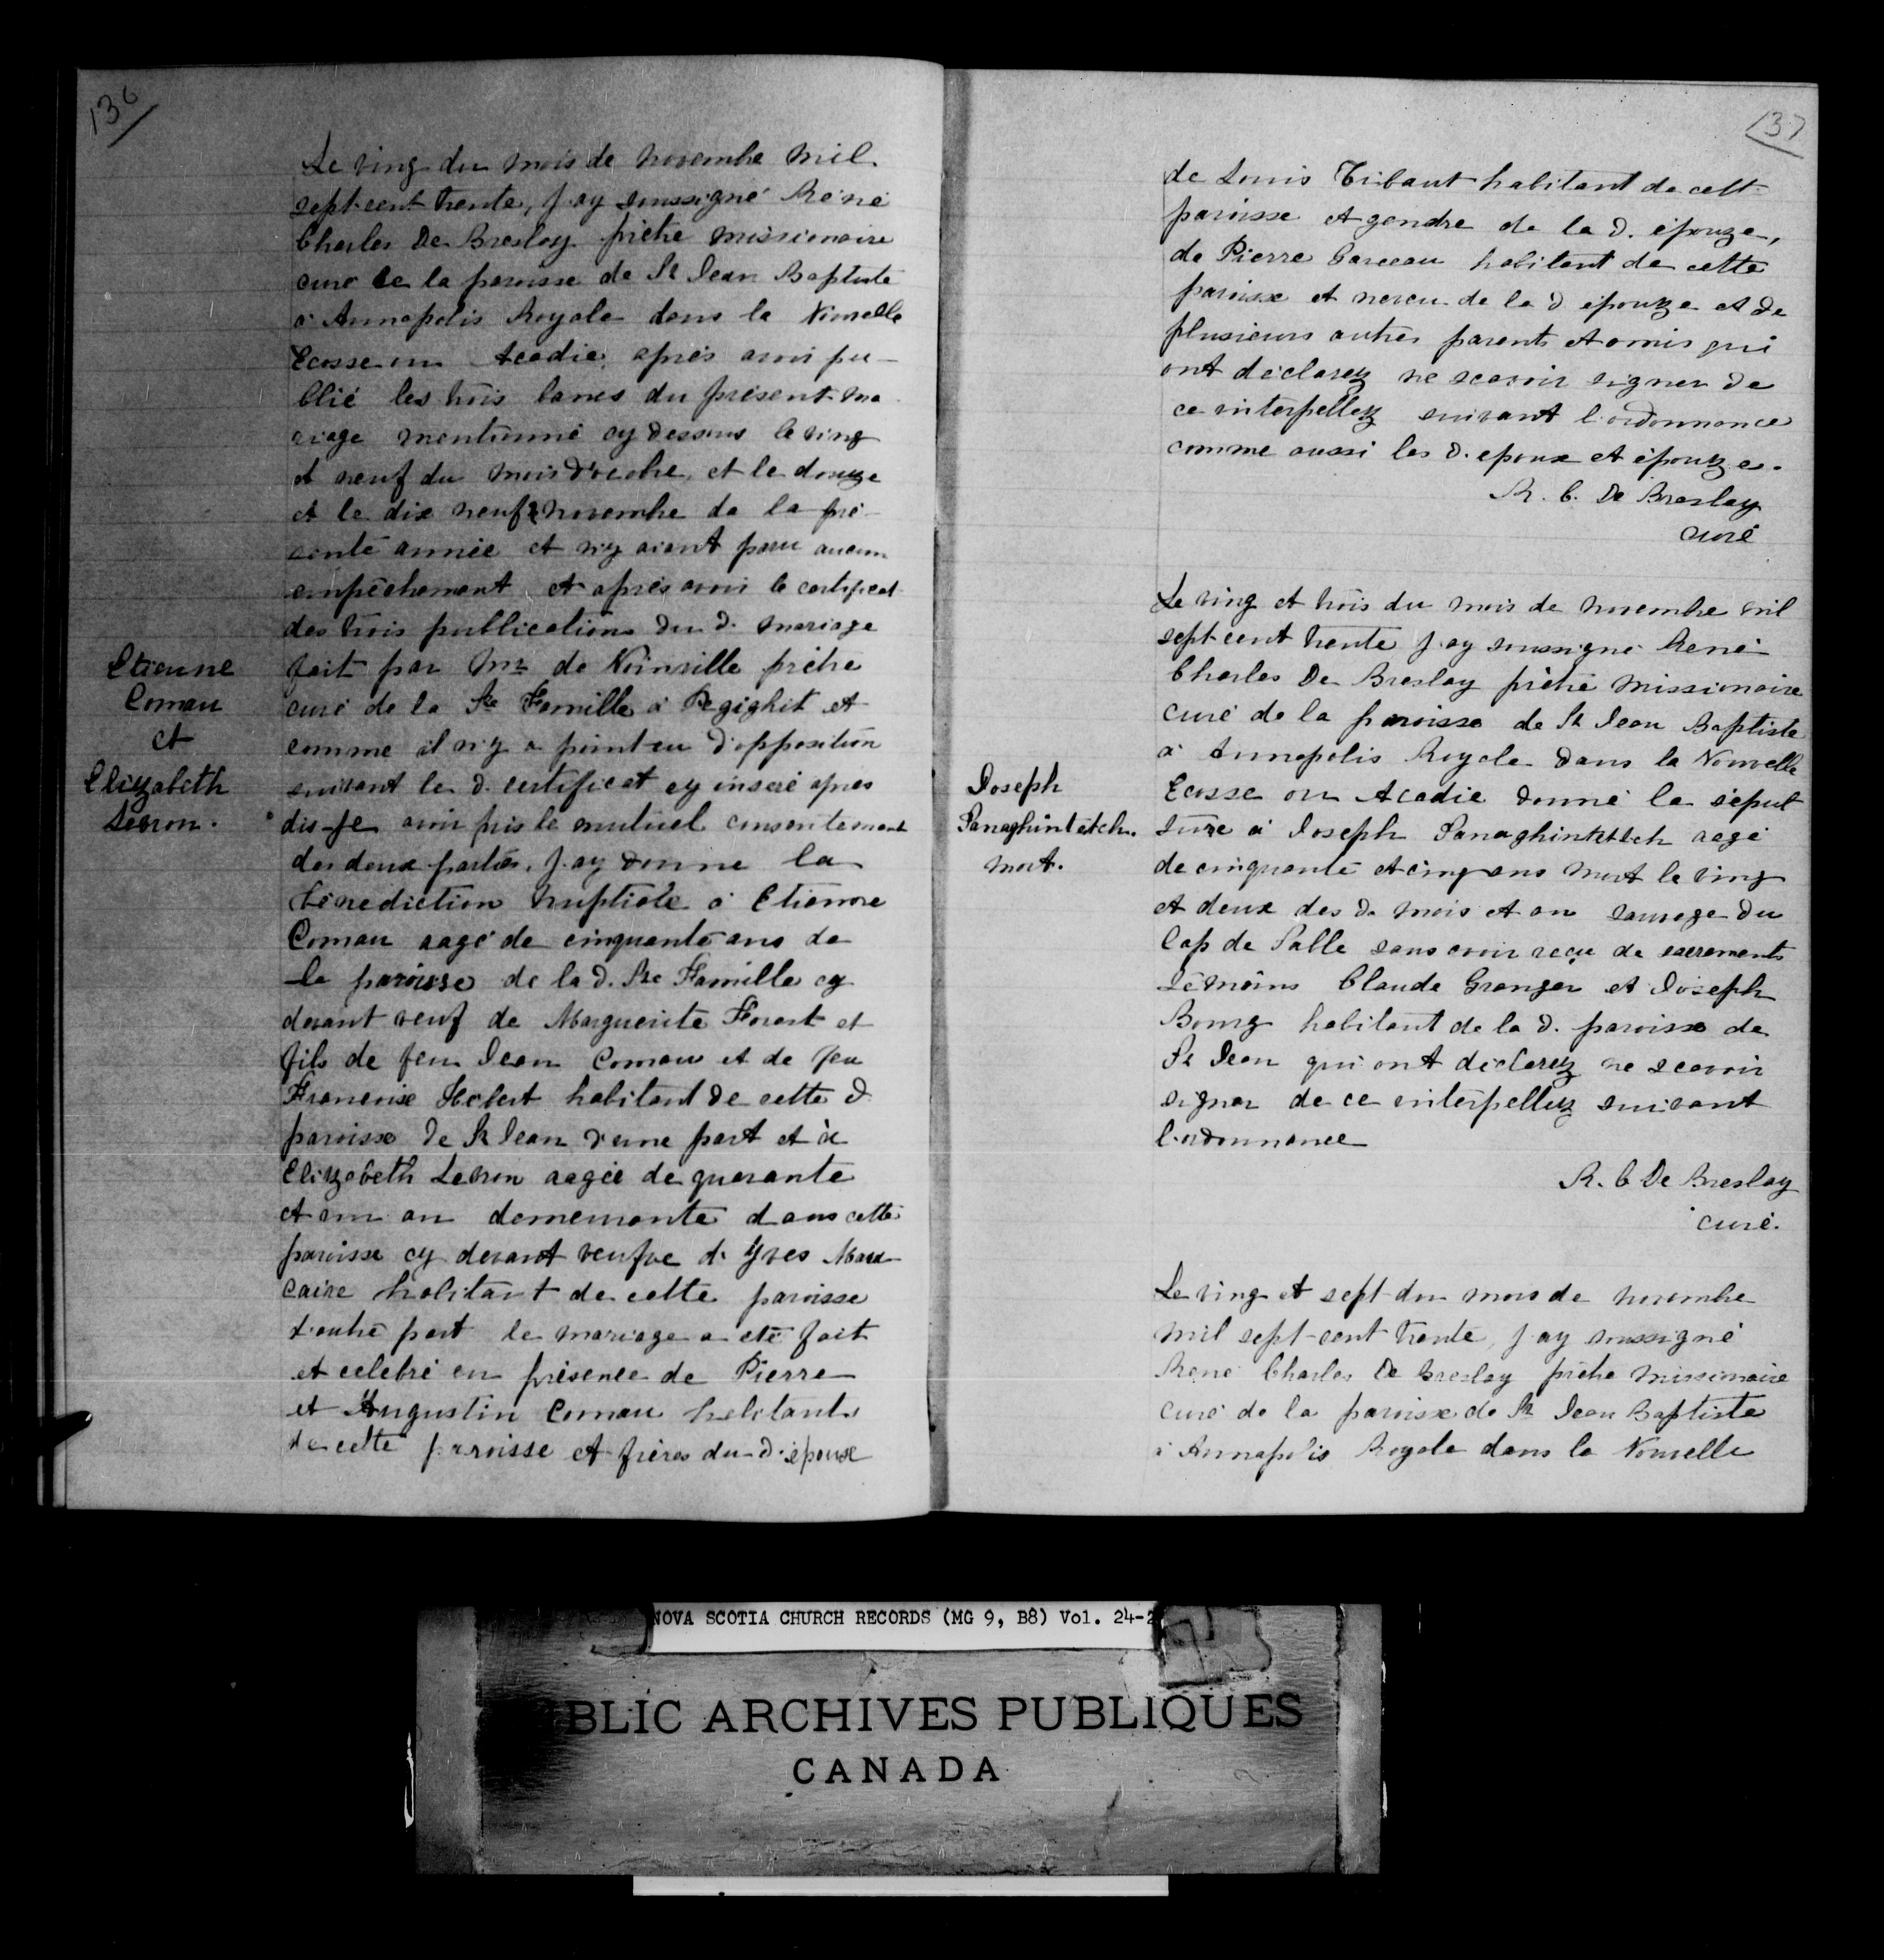 136
Le ving du mois de novembre mil
sept-cent trente, j'ay soussigné René
Charles De Breslay prêtre missionaire
curé de la paroisse de St Jean Baptiste
à Annapolis Royale dans la Nouvelle
Ecosse ou Acadie, après avoir pu-
blié les trois bancs du présent ma
riage mentionné cy dessous le ving
et neuf du mois d'octobre, et le douze
et le dix neuf novembre de la pré-
sente année et n'y aiant paru aucun
empêchement et après avoir le certificat
des trois publications du d. mariage
fait par Mr de Noinville prêtre
curé de la Ste Famille à Pegighit et
comme il n'y a point eu d'opposition
suivant le d. certificat cy inseré apres
dis-je avoir pris le mutuel consentement
des deux parties, j'ay donné la
bénédiction nuptiale à Etienne
Comau aagé de cinquante ans de
la paroisse de la d. Ste Famille cy
devant veuf de Marguerite Forest et
fils de feu Jean Comau et de feu
Francoise Hebert habitant de cette d
paroisse de St Jean d'une part et à
Elizabeth Levron aagée de quarante
et un an demeurante dans cette
paroisse cy devant veufve d'Yves Mau
caire habitant de cette paroisse
d'autre part le mariage a été fait
et celebré en présence de Pierre
et Augustin Comau habitants
de cette paroisse et frères du d. époux
Etienne
Comau
et
Elizabeth
Levron.
137
de Louis Tibaut habitant de cett
paroisse et gendre de la d. épouze,
de Pierre Garceau habitant de cette
paroisse et neveu de la d épouze et de
plusieurs autres parents et amis qui
ont déclarez ne scavoir signer de
ce interpellez suivant l'ordonnance
comme aussi les d. epoux et épouze.
R. C. De Breslay
curé
Le ving et trois du mois de novembre mil
sept-cent trente j'ay soussigné René
Charles De Breslay prêtre missionaire
curé de la paroisse de St Jean Baptiste
à Annapolis Royale dans la Nouvelle
Ecosse ou Acadie donné la sépul
ture à Joseph Sanaghintetch aagé
de cinquante et cinq ans mort le ving
et deux des d. mois et an sauvage du
Cap de Salle sans avoir recu de sacrements
témoins Claude Granger et Joseph
Bourg habitant de la d. paroisse de
St Jean qui ont déclarez ne scavoir
signer de ce interpellez suivant
l'ordonnance
R. C De Breslay
curé.
Joseph
Sanaghintetch.
mort.
Le ving et sept du mois de novembre
mil sept-cent trente, j'ay soussigné
René Charles De Breslay prêtre missionaire
curé de la paroisse de St Jean Baptiste
à Annapolis Royale dans la Nouvelle
NOVA SCOTIA CHURCH RECORDS (MG 9, B8) Vol. 24-2
BLIC ARCHIVES PUBLIQUES
CANADA